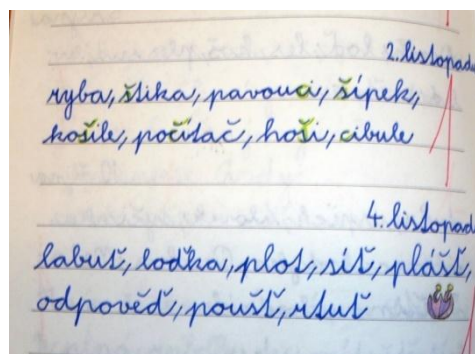 2. listopadu
ryba, štika, pavouci, šípek,
košile, počítač, hoši, cibule
4. listopadu
labuť, loďka, plot, síť, plášť,
odpověď, poušť, rtuť